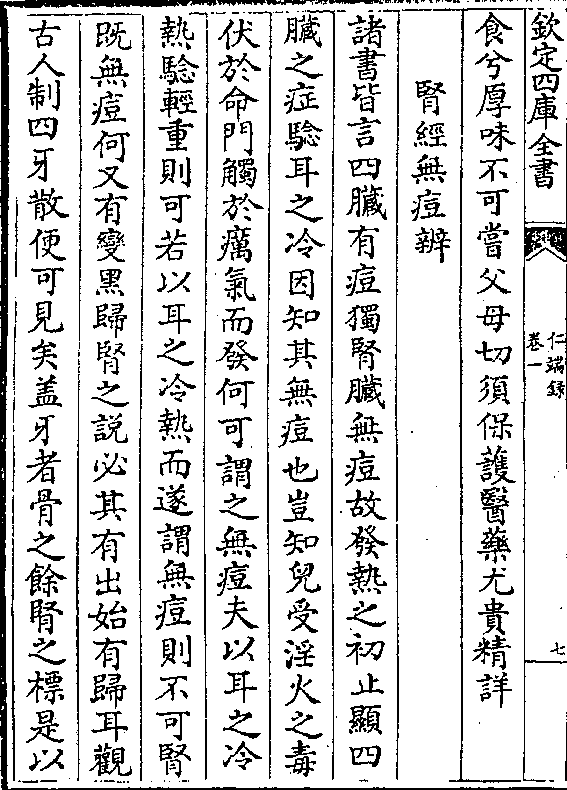 欽定四庫全書
仁端錄
卷一
七
食兮厚味不可嘗父母切須保護醫藥尤貴精詳
腎經無痘辨
諸書皆言四臟有痘獨腎臟無痘故發熱之初止顯四
臟之症驗耳之冷因知其無痘也豈知兒受淫火之毒
伏於命門觸於癘氣而發何可謂之無痘夫以耳之冷
熱驗輕重則可若以耳之冷熱而遂謂無痘則不可腎
既無痘何又有變黑歸腎之説必其有出始有歸耳觀
古人制四牙散便可見矣盖牙者骨之餘腎之標是以